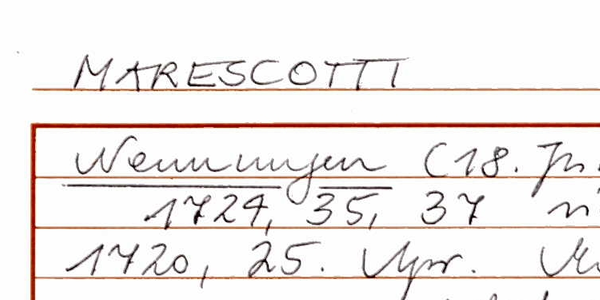 MARESCOTTI
Nennungen (18. Jh.
1724, 35, 37
1720, 25. Apr.